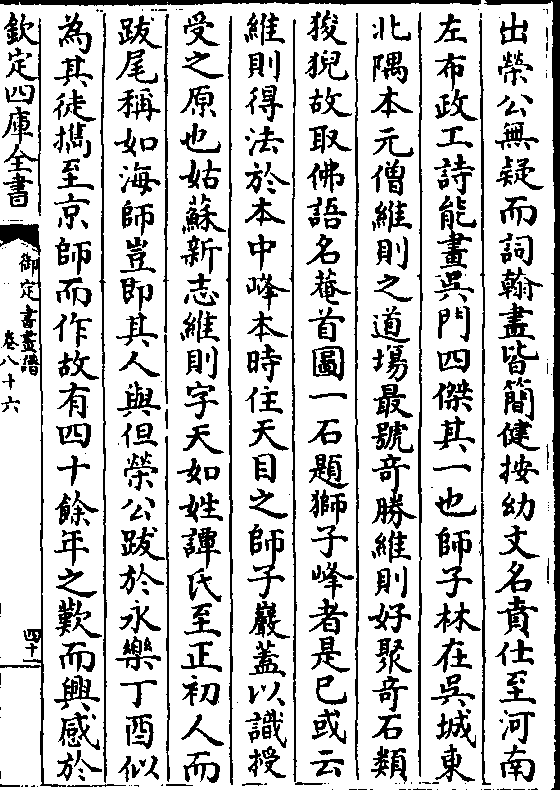 出榮公無疑而詞翰畫皆簡健按幼文名賁仕至河南
左布政工詩能畫吳門四傑其一也師子林在吳城東
北隅本元僧維則之道場最號奇勝維則好聚奇石類
狻猊故取佛語名菴首圖一石題獅子峰者是已或云
維則得法於本中峰本時住天目之師子巖蓋以識授
受之原也姑蘇新志維則字天如姓譚氏至正初人而
跋尾稱如海師豈即其人與但榮公跋於永樂丁酉似
為其徒攜至京師而作故有四十餘年之歎而興感於
欽定四庫全書
御定書畫譜
卷八十六
四十一